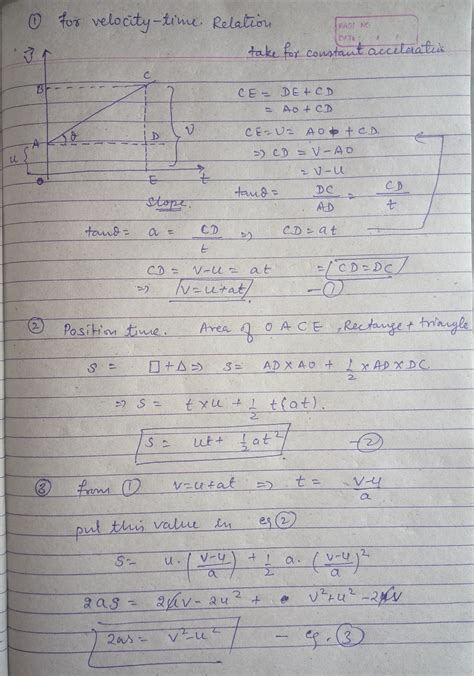 ① for velocity-time. Relation
PAGE NO
DATE
take for constant acceleratin
v
B C
A θ D
u V
O E t
CE = DE + CD
= AO + CD
CE = V = AO + CD.
⇒ CD = V - AO
= V - U
tanθ = DC/AD = CD/t
Slope.
tanθ = a = CD/t ⇒ CD = at
CD = V - U = at = CD = DC
⇒ V = U + at — ①
② Position time. Area of OACE, Rectange + triangle
S = □ + Δ ⇒ S = AD × AO + 1/2 × AD × DC
⇒ S = t × u + 1/2 t(at).
S = ut + 1/2 at² — ②
③ from ① V = u + at ⇒ t = V-U/a
put this value in eq ②
S = u.(V-U/a) + 1/2 a.(V-U/a)²
2aS = 2uv - 2u² + V² + u² - 2uv
2as = V² - u² — eq. ③